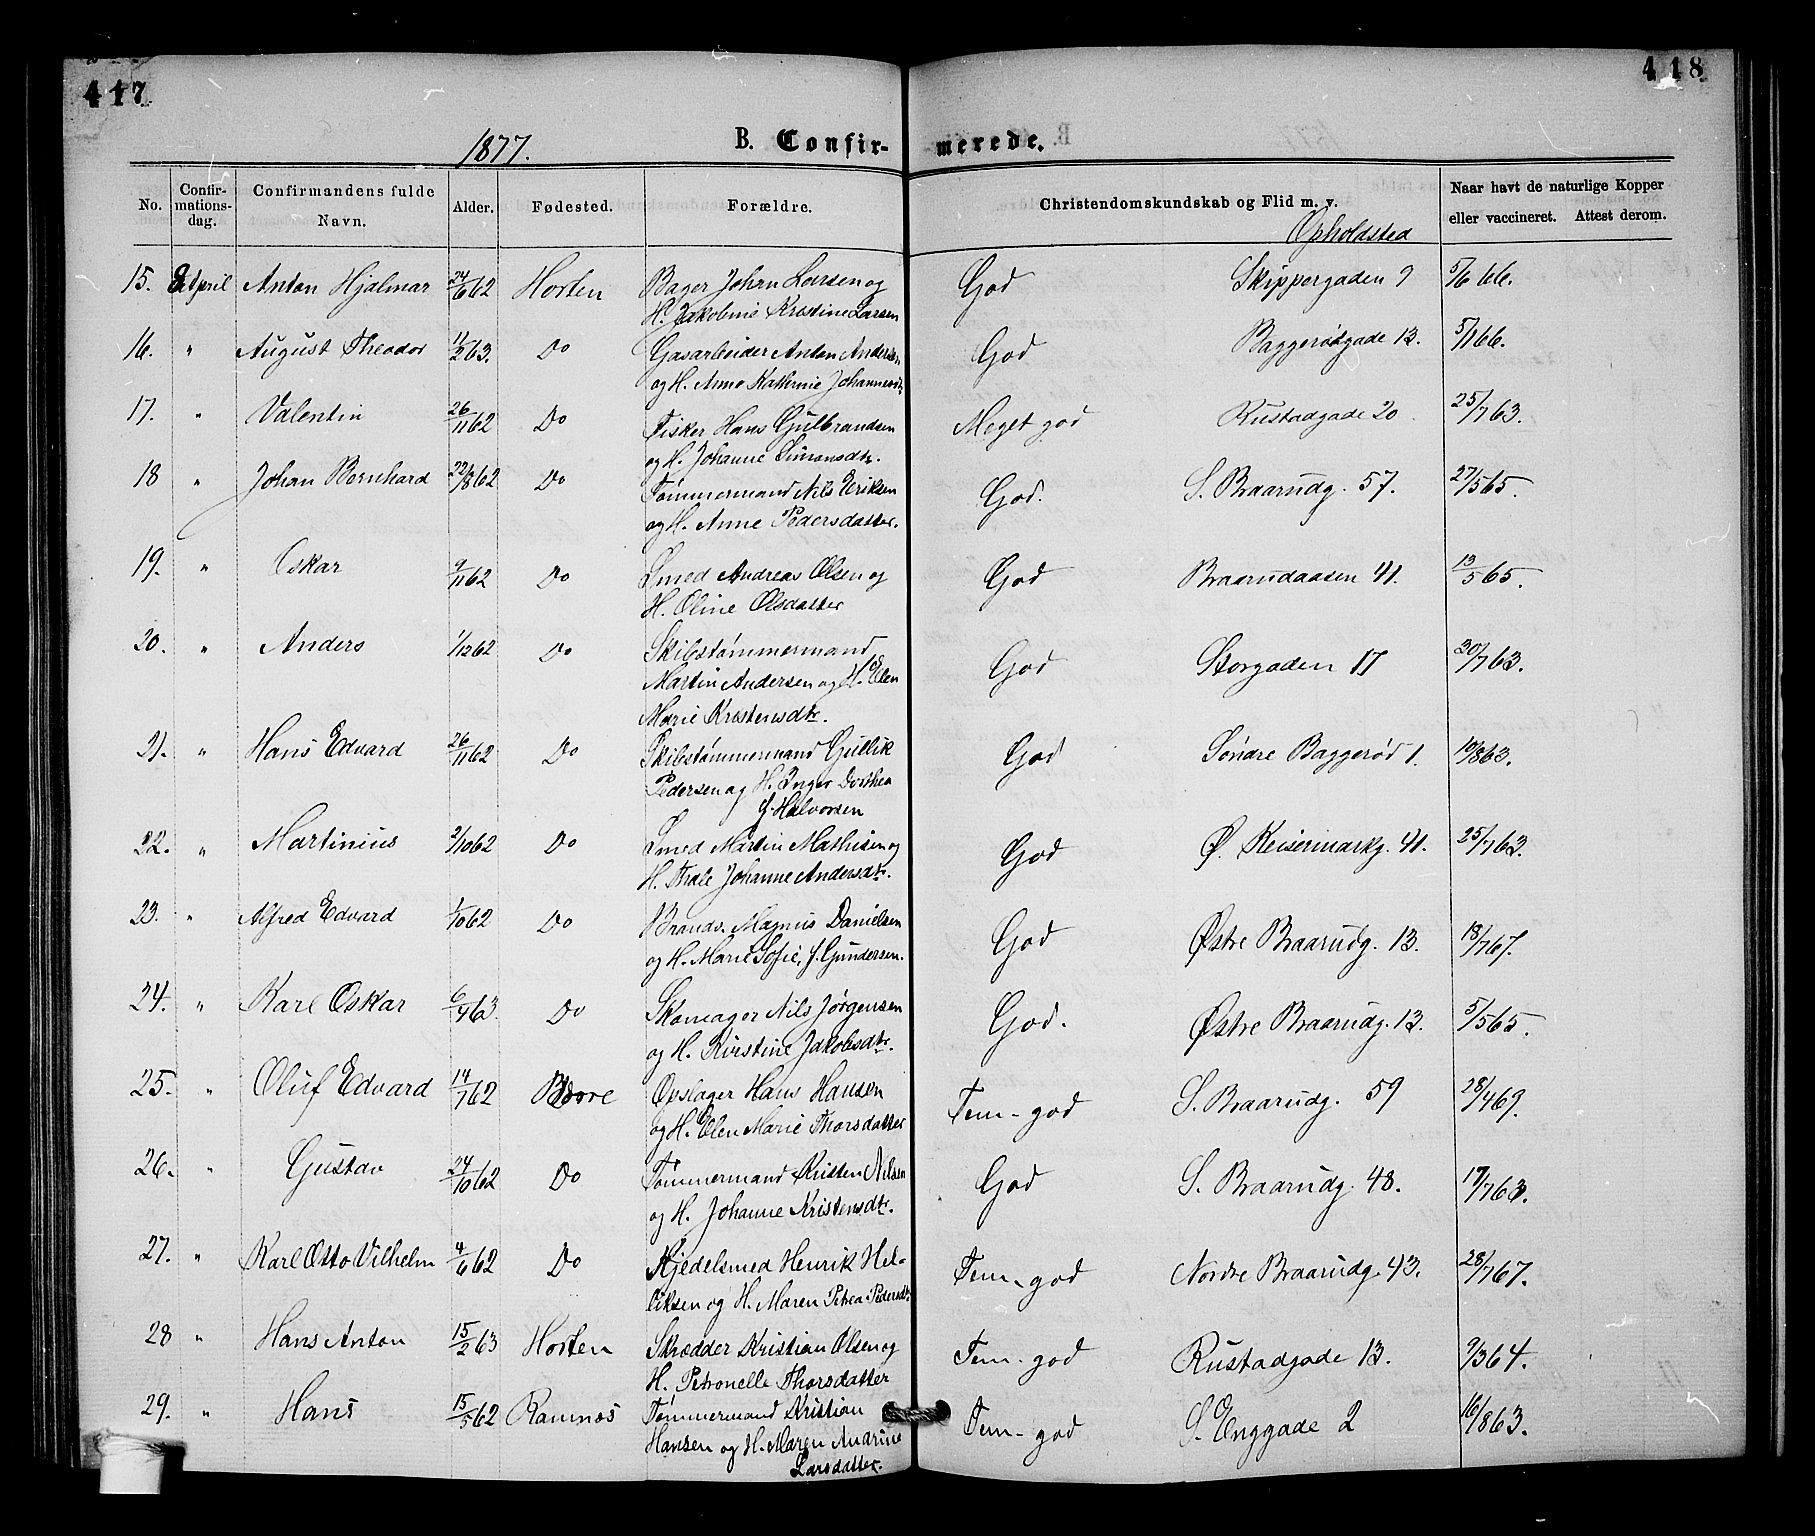 417
418
1877.
B. Confir-
merede.
No.
Confir-
mations-
dag.
Confirmandens fulde
Navn.
Alder.
Fødested.
Forældre.
Christendomskundskab og Flid m. v.
Opholdsted
Naar havt de naturlige Kopper
eller vaccineret. Attest derom.
15. 8 April Anton Hjalmar 24/6 62 Horten Bager Johan Larsen og God Skippergaden 9 5/6 66.
H. Jakobine Kristine Larsen
16. " August Theodor 11/2 63. Do Gasarbeider Anton Andersen God Baggerødgade 13. 5/1 66.
og H. Anne Kathrine Johannesdtr
17. " Valentin 26/11 62 Do Fisker Hans Gulbrandsen Meget god Rustadgade 20 25/7 63.
og H. Johanne Simensdtr.
18 " Johan Bernhard 22/8 62 Do Tømmermand Nils Eriksen God. S. Braarudg. 57. 27/5 65.
og H. Anne Pedersdatter.
19. " Oskar 9/11 62 Do Smed Andreas Olsen og God Braarudaasen 41. 13/5 65.
H. Oline Olsdatter
20. " Anders 1/12 62 Do Skibstømmermand God Storgaden 17 30/7 63.
Martin Andersen og H. Elen
Marie Kristensdtr.
21. " Hans Edvard 26/11 62 Do Skibstømmermand Gullik God Søndre Baggerød 1. 10/8 63.
Pedersen og H. Inger Dorthea
f. Halvorsen
22. " Martinius 2/10 62 Do Smed Martin Mathisen og God Ø. Keisermarkg. 41. 25/7 63.
H. Thale Johanne Andersdtr.
23. " Alfred Edvard 1/10 62 Do Brands. Magnus Danielsen God Østre Braarudg. 13. 18/7 67.
og H. Marie Sofie, f. Gundersen.
24. " Karl Oskar 6/4 63. Do Skomager Nils Jørgensen God. Østre Braarudg. 13. 5/5 65.
og H. Kirstine Jakobsdtr.
25. " Oluf Edvard 14/7 62 Borre Opslager Hans Hansen Tem-god S. Braarudg. 59 28/4 69.
og H. Elen Marie Thorsdatter
26. " Gustav 24/10 62 Do Tømmermand Kristen Nilsen God S. Braarudg. 48. 17/7 63.
og H. Johanne Kristensdtr.
27. " Karl Otto Vilhelm 4/6 62 Do Kjedelsmed Henrik Hel- Tem-god Nordre Braarudg. 43. 28/7 67.
liksen og H. Maren Petrea Pedersdtr
28 " Hans Anton 15/2 63 Horten Skrædder Kristian Olsen og Tem-god Rustadgade 13. 9/3 64.
H. Petronelle Thorsdatter
29. " Hans 15/5 62 Ramnæs Tømmermand Kristian Tem-god S. Enggade 2 16/8 63.
Hansen og H. Maren Andrine
Larsdatter.